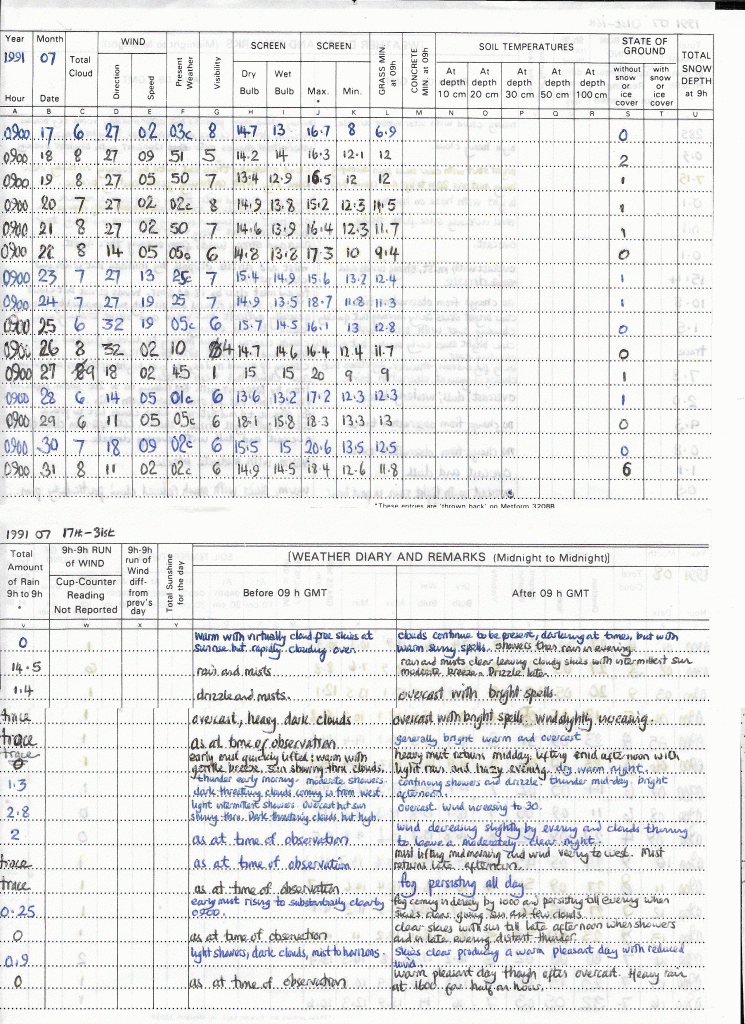 Year Month WIND SCREEN SCREEN GRASS MIN. at 09h CONCRETE MIN. at 09h SOIL TEMPERATURES STATE OF GROUND TOTAL SNOW DEPTH at 9h
1991 07 Total Cloud Direction Speed Present Weather Visibility Dry Bulb Wet Bulb Max. * Min. At depth 10 cm At depth 20 cm At depth 30 cm At depth 50 cm At depth 100 cm without snow or ice cover with snow or ice cover
Hour Date
A B C D E F G H I J K L M N O P Q R S T U
0900 17 6 27 02 03c 8 14.7 13 16.7 8 6.9 0
0900 18 8 27 09 51 5 14.2 14 16.3 12.1 12 2
0900 19 8 27 05 50 7 13.4 12.9 16.5 12 12 1
0900 20 7 27 02 02c 8 14.9 13.8 15.2 12.3 11.5 1
0900 21 8 27 02 50 7 14.6 13.9 16.4 12.3 11.7 1
0900 22 8 14 05 05c 6 14.8 13.8 17.3 10 9.4 0
0900 23 7 27 13 25c 7 15.4 14.9 15.6 13.2 12.4 1
0900 24 7 27 19 25 7 14.9 13.5 18.7 11.8 11.3 1
0900 25 6 32 19 05c 6 15.7 14.5 16.1 13 12.8 0
0900 26 8 32 02 10 4 14.7 14.6 16.4 12.4 11.7 0
0900 27 9 18 02 45 1 15 15 20 9 9 1
0900 28 6 14 05 01c 6 13.6 13.2 17.2 12.3 12.3 1
0900 29 6 11 05 05c 6 18.1 15.8 18.3 13.3 13 0
0900 30 7 18 09 02c 6 15.5 15 20.6 13.5 12.5 0
0900 31 8 11 02 02c 6 14.9 14.5 18.4 12.6 11.8 6
*These entries are 'thrown back' on Metform 3208B
1991 07 17th-31st
Total Amount of Rain 9h to 9h * 9h-9h RUN of WIND Cup-Counter Reading Not Reported 9h-9h run of Wind diff- from prev's day Total Sunshine for the day [WEATHER DIARY AND REMARKS (Midnight to Midnight)]
Before 09 h GMT After 09 h GMT
V W X Y
0 warm with virtually cloud free skies at sunrise but rapidly clouding over. clouds continue to be present, darkening at times, but with warm sunny spells. showers then rain in evening.
14.5 rain and mists rain and mists clear leaving cloudy skies with intermittent sun moderate breeze. Drizzle late.
1.4 drizzle and mists. overcast with bright spells.
trace overcast, heavy dark clouds overcast with bright spells wind slightly increasing.
trace as at time of observation generally bright warm and overcast
0 early mist quickly lifted; warm with gentle breeze, sun showing thru clouds. heavy mist returns midday: lifting mid afternoon with light rain and hazy evening. dry warm night.
1.3 thunder early morning. moderate showers dark threatening clouds coming in from west. continuing showers and drizzle. thunder mid-day. bright afternoon.
2.8 light intermittent showers. Overcast but sun shining thru. Dark threatening clouds but high. overcast. Wind increasing to 30.
2 as at time of observation wind decreasing slightly by evening and clouds thinning to leave a moderately clear night.
trace as at time of observation mist lifting mid morning and wind veering to west. Mist returns late afternoon.
trace as at time of observation fog persisting all day
0.25 early mist rising to substantially clear by 0900. fog coming in density by 1000 and persisting till evening when skies clear, giving sun and few clouds.
0 as at time of observation clear skies with sun till late afternoon when showers and in late evening distant thunder.
0.9 light showers, dark clouds, mist to horizons. Skies clear producing a warm pleasant day with reduced wind.
0 as at time of observation warm pleasant day though often overcast. Heavy rain at 1600 for half an hour.